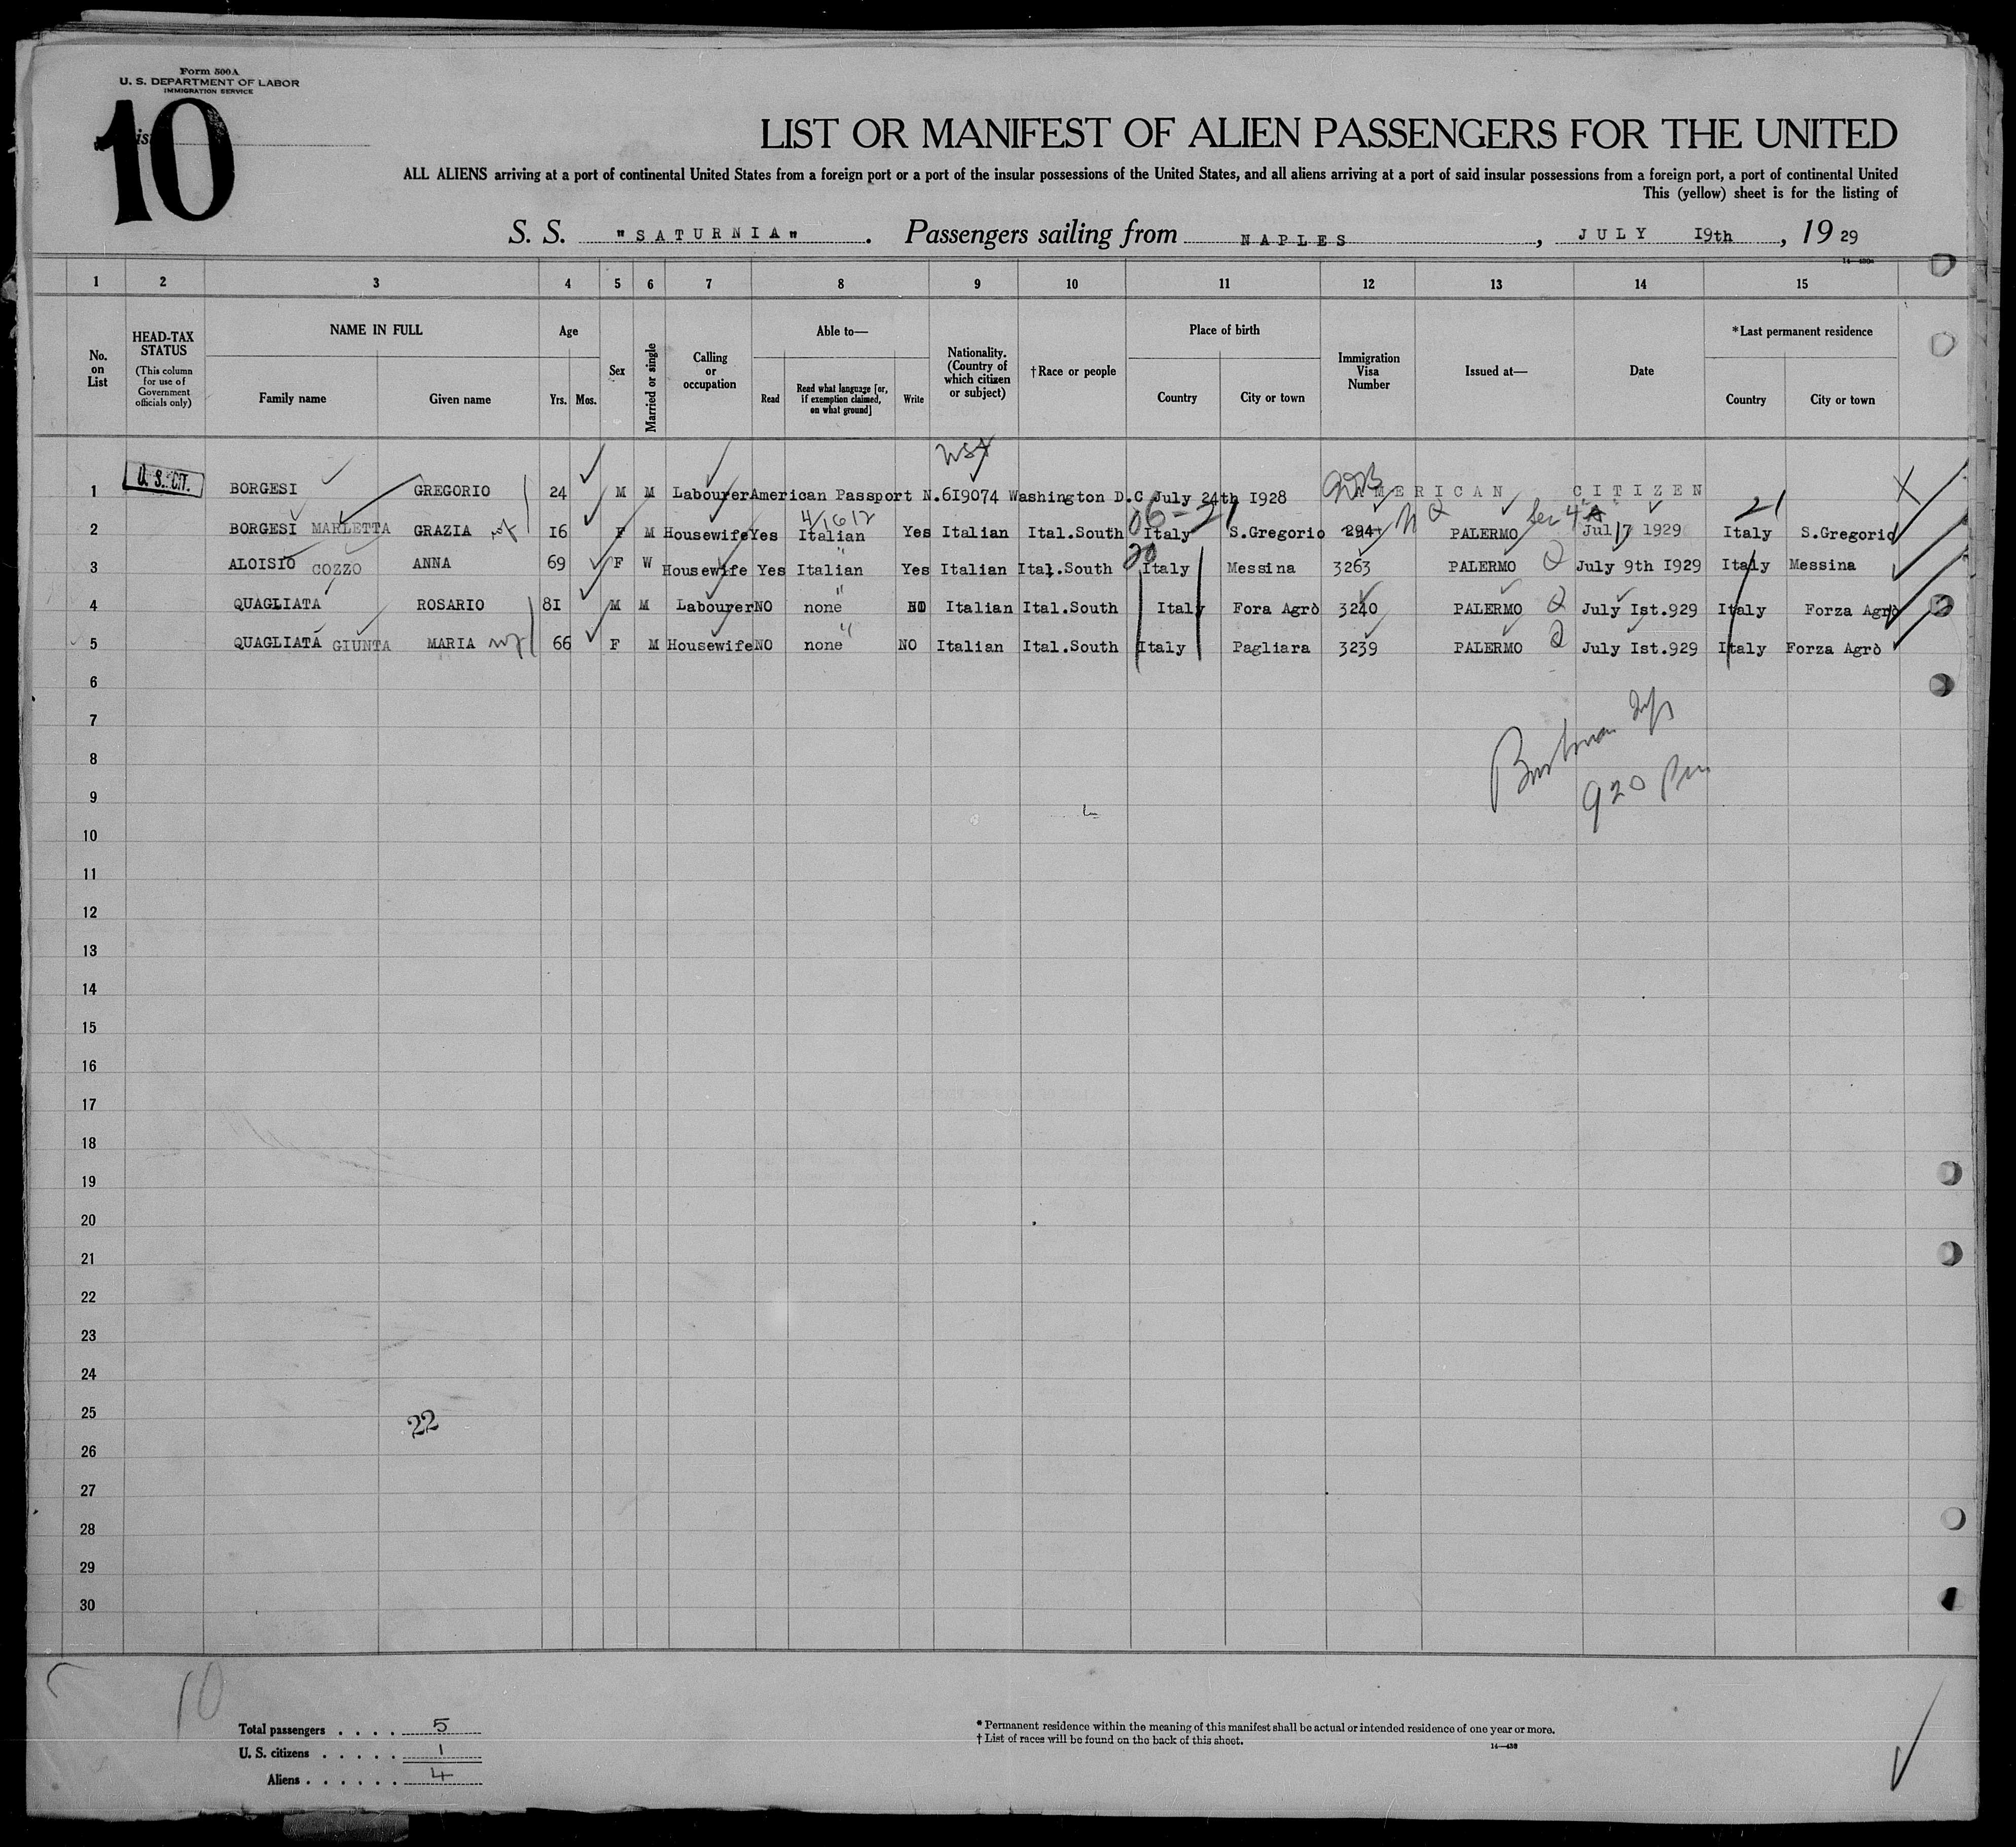 Form 500A
U. S. DEPARTMENT OF LABOR
IMMIGRATION SERVICE
10
LIST OR MANIFEST OF ALIEN PASSENGERS FOR THE UNITED
ALL ALIENS arriving at a port of continental United States from a foreign port or a port of the insular possessions of the United States, and all aliens arriving at a port of said insular possessions from a foreign port, a port of continental United
This (yellow) sheet is for the listing of
S. S. "SATURNIA". Passengers sailing from NAPLES, JULY 19th, 1929
1 2 3 4 5 6 7 8 9 10 11 12 13 14 15
No. on List
HEAD-TAX STATUS (This column for use of Government officials only)
NAME IN FULL
Family name Given name
Age
Yrs. Mos.
Sex
Married or single
Calling or occupation
Able to—
Read Read what language [or, if exemption claimed, on what ground] Write
Nationality. (Country of which citizen or subject)
†Race or people
Place of birth
Country City or town
Immigration Visa Number
Issued at—
Date
*Last permanent residence
Country City or town
USA
1 U. S. CIT. BORGESI GREGORIO 24 M M Labourer American Passport N.619074 Washington D.C July 24th 1928 AMERICAN CITIZEN
4/1612 06-21 Sec 4A 21
2 BORGESI MARLETTA GRAZIA wf 16 F M Housewife Yes Italian Yes Italian Ital.South Italy S.Gregorio 294 NQ PALERMO Jul 17 1929 Italy S.Gregorio
3 ALOISIO COZZO ANNA 69 F W Housewife Yes Italian " Yes Italian Ital.South 20 Italy Messina 3263 PALERMO Q July 9th 1929 Italy Messina
4 QUAGLIATA ROSARIO 81 M M Labourer NO none " NO Italian Ital.South Italy Fora Agrò 3240 PALERMO Q July Ist.929 Italy Forza Agrò
5 QUAGLIATA GIUNTA MARIA wf 66 F M Housewife NO none " NO Italian Ital.South Italy Pagliara 3239 PALERMO Q July Ist.929 Italy Forza Agrò
6
7
8
9
920 Pm
10
11
12
13
14
15
16
17
18
19
20
21
22
23
24
25
22
26
27
28
29
30
10
Total passengers . . . . 5
U. S. citizens . . . . . 1
Aliens . . . . . . 4
* Permanent residence within the meaning of this manifest shall be actual or intended residence of one year or more.
† List of races will be found on the back of this sheet.
14—430